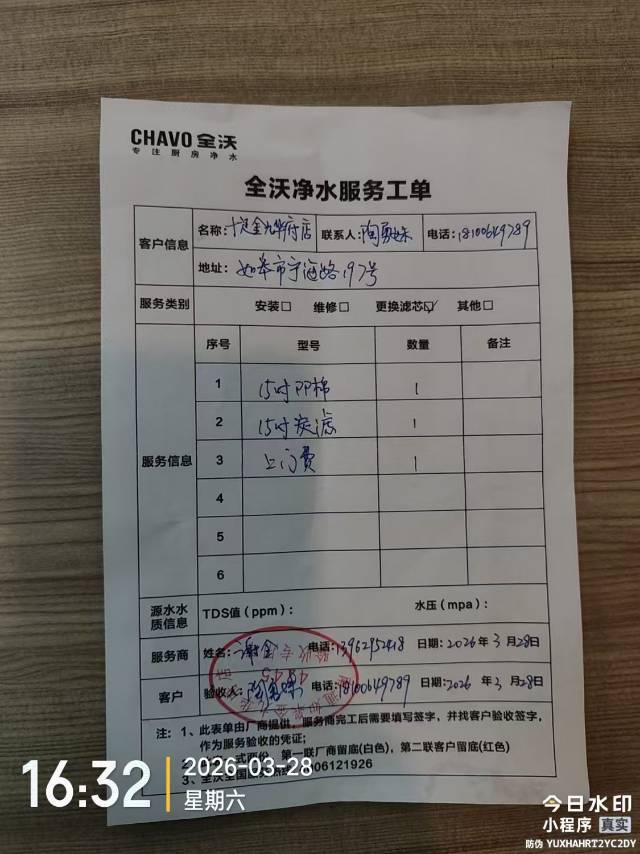 CHAVO 全沃
专注厨房净水
全沃净水服务工单
客户信息
名称：十足金九华府店 联系人：陶勇妹 电话：18100649789
地址：如皋市宁海路197号
服务类别 安装□ 维修□ 更换滤芯☑ 其他□
服务信息
序号 型号 数量 备注
1 15吋PP棉 1
2 15吋炭滤 1
3 上门费 1
4
5
6
源水水质信息 TDS值（ppm）： 水压（mpa）：
服务商 姓名： 电话：13962952418 日期：2026年3月28日
客户 验收人：陶勇妹 电话：18100649789 日期：2026年3月28日
注：1、此表单由厂商提供，服务商完工后需要填写签字，并找客户验收签字，
作为服务验收的凭证；
式两份，第一联厂商留底(白色)，第二联客户留底(红色)
3、全沃全国 006121926
16:32
2026-03-28
星期六
今日水印
小程序 真实
防伪 YUXHAHRT2YC2DY